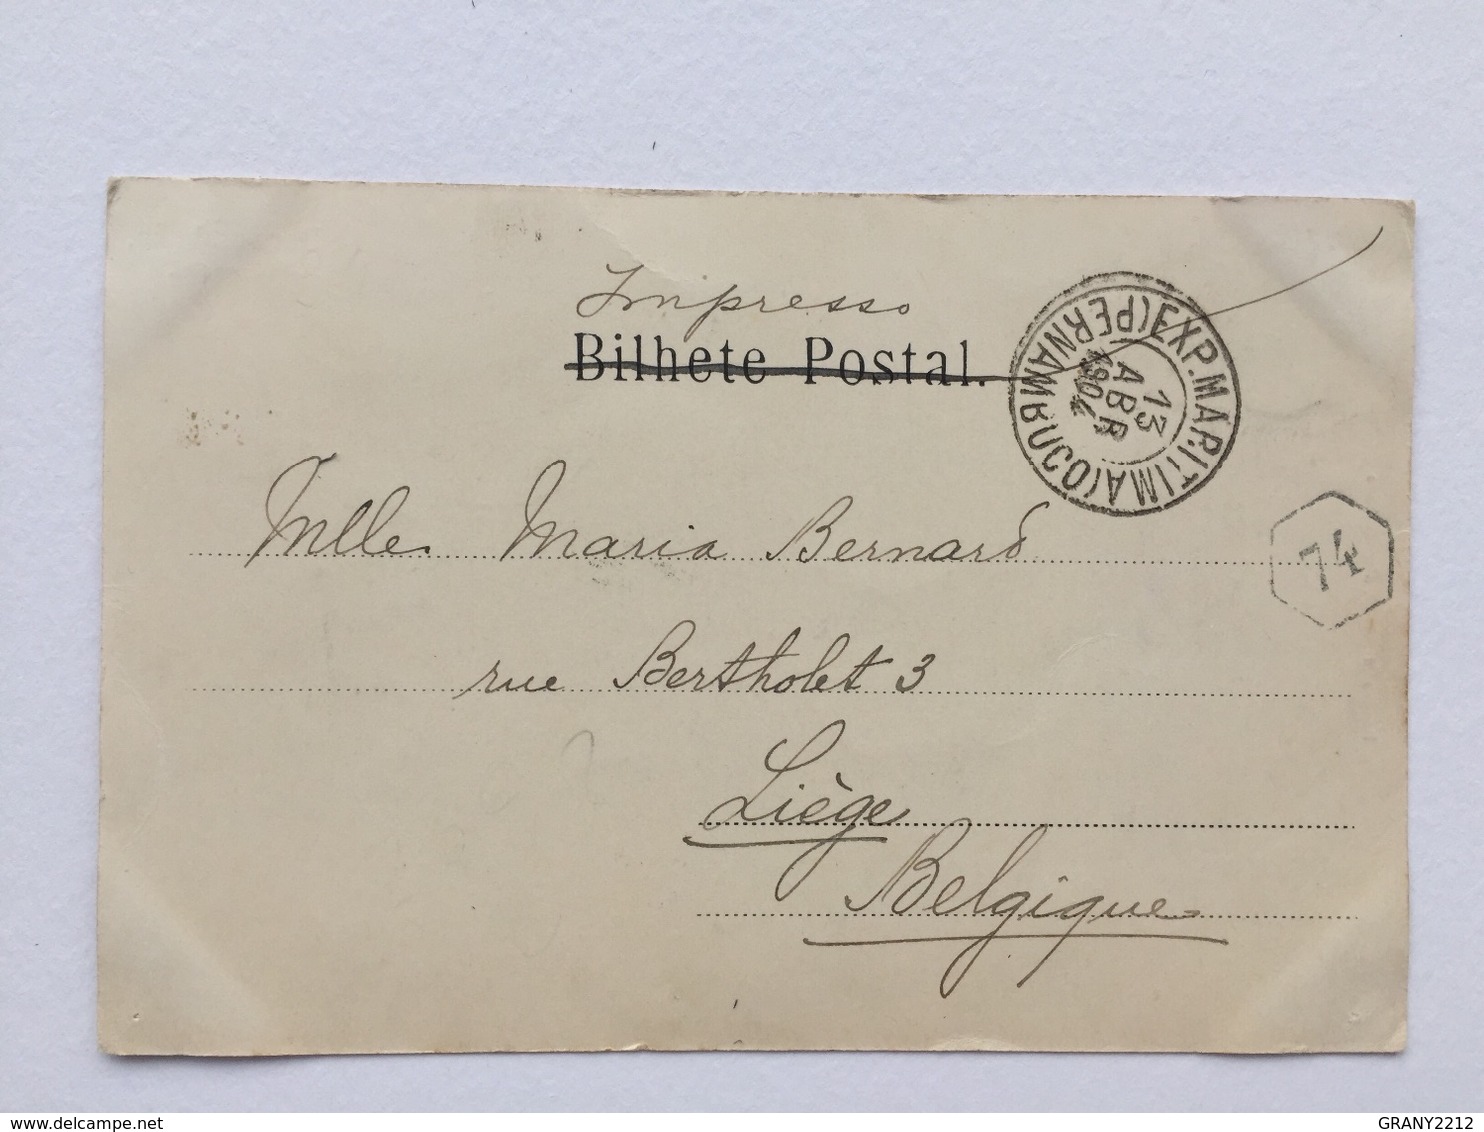 Impresso
Bilhete Postal.
EXP. MARITIMA (PERNAMBUCO)
13
ABR
1904
Mlle Maria Bernard
74
rue Bertholet 3
Liège
Belgique
delcampe.net
GRANY2212